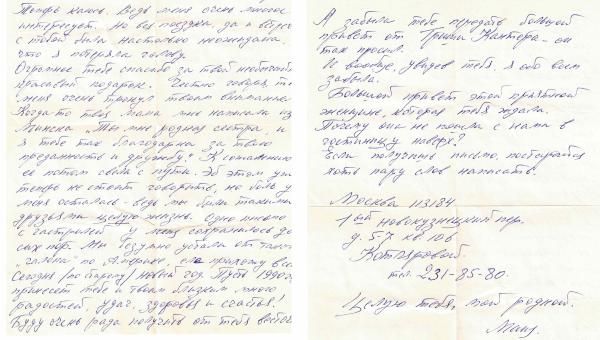 Теперь каюсь. Ведь меня очень многое
интересует. Но вся поездка, да и встреча
с тобой была настолько неожиданна,
что я потеряла голову.
Огромное тебе спасибо за твой необычайно
красивый подарок. Честно говоря,
меня очень тронул твоим вниманием.
Когда-то твоя мама мне написала из
Минска „Ты мне родная сестра, и
я тебе так благодарна за твою
преданность и дружбу." К сожалению
ее потом сбили с пути. Об этом уж
теперь не стоит говорить, но боль у
меня осталась - ведь мы были такими
друзьями целую жизнь. Одно письмо
с гастролей у меня сохранилось до
сих пор. Мы безумно устали от такого
"галопа" по Америке, еле прихожу в себя
Сегодня /по старому/ новый год. Пусть 1990г.
принесет тебе и твоим близким много
радостей, удач, здоровья и счастья!
Буду очень рада получить от тебя весточку
Я забыла тебе передать большой
привет от Гриши Кантора - он
так просил.
И вообще, увидев тебя, я обо всем
забыла.
Большой привет этой приятной
женщине, которая тебя ждала.
Почему она не пошла с нами в
гостиницу наверх?
Если получишь письмо, постарайся
хоть пару слов написать.
Москва 113184
1ый Новокузнецкий пер.
д. 5-7 кв 106
Котляровой.
тел. 231-85-80.
Целую тебя, мой родной.